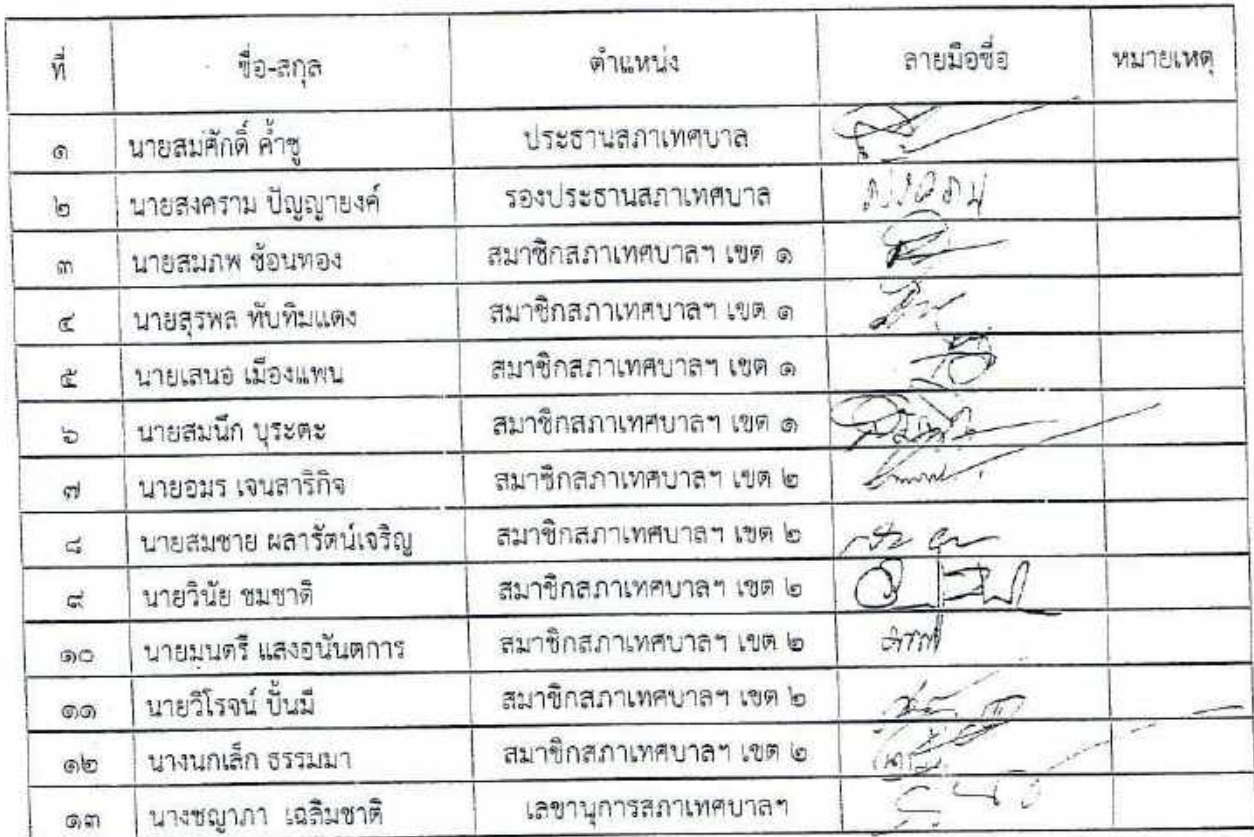 ที่ ชื่อ-สกุล ตำแหน่ง ลายมือชื่อ หมายเหตุ
๑ นายสมศักดิ์ ค้ำชู ประธานสภาเทศบาล
๒ นายสงคราม ปัญญายงค์ รองประธานสภาเทศบาล
๓ นายสมภพ ช้อนทอง สมาชิกสภาเทศบาลฯ เขต ๑
๔ นายสุรพล ทับทิมแดง สมาชิกสภาเทศบาลฯ เขต ๑
๕ นายเสนอ เมืองแพน สมาชิกสภาเทศบาลฯ เขต ๑
๖ นายสมนึก บุระตะ สมาชิกสภาเทศบาลฯ เขต ๑
๗ นายอมร เจนสาริกิจ สมาชิกสภาเทศบาลฯ เขต ๒
๘ นายสมชาย ผลารัตน์เจริญ สมาชิกสภาเทศบาลฯ เขต ๒
๙ นายวินัย ชมชาติ สมาชิกสภาเทศบาลฯ เขต ๒
๑๐ นายมนตรี แสงอนันตการ สมาชิกสภาเทศบาลฯ เขต ๒
๑๑ นายวิโรจน์ ปั้นมี สมาชิกสภาเทศบาลฯ เขต ๒
๑๒ นางนกเล็ก ธรรมมา สมาชิกสภาเทศบาลฯ เขต ๒
๑๓ นางชญาภา เฉลิมชาติ เลขานุการสภาเทศบาลฯ